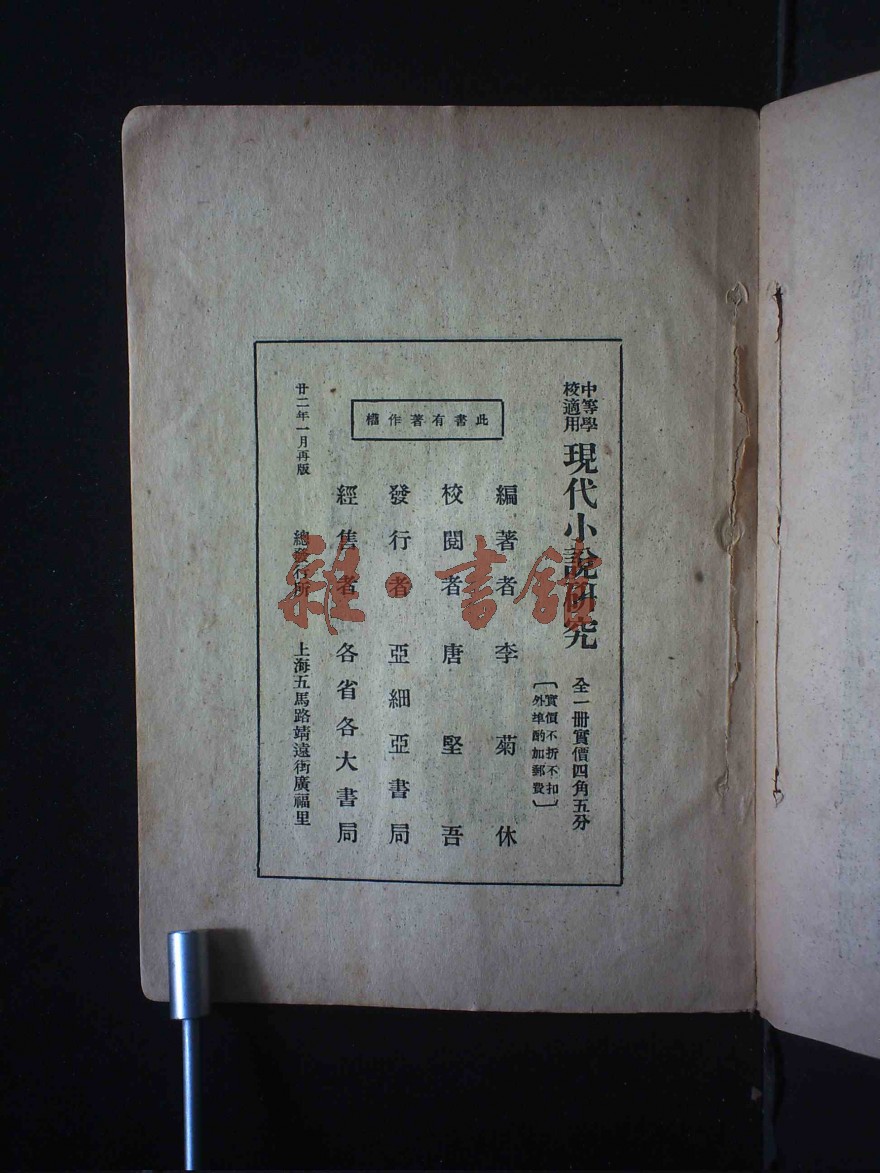 中等學
校適用
現代小說研究
全一冊實價四角五分
〔實價不折不扣〕
〔外埠酌加郵費〕
編著者 李菊休
校閱者 唐堅吾
發行者 亞細亞書局
經售者 各省各大書局
此書有著作權
廿二年一月再版
總發行所 上海五馬路靖遠街廣福里
雜·書館